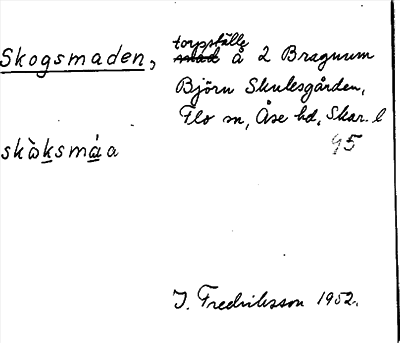 Skogsmaden, torpställe å 2 Bragnum
Björn Skulesgården,
Flo sn, Åse hd, Skar. l
95
skὼksmὰa
J. Fredriksson 1952.